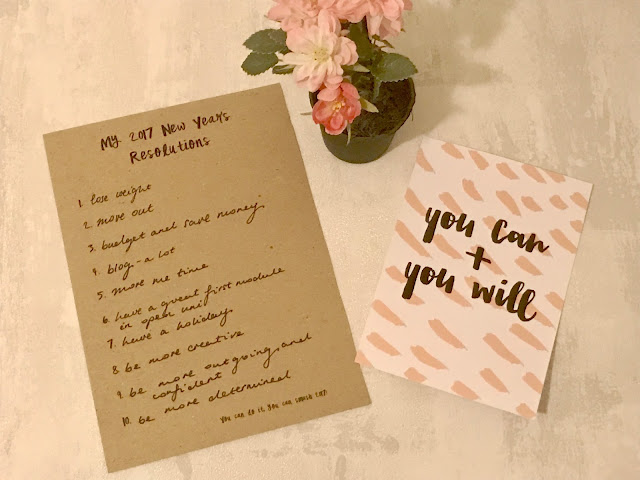 My 2017 New Years
Resolutions
1. lose weight
2. move out
3. budget and save money
4. blog - a lot
5. more me time
6. have a great first module
in open uni
7. have a holiday
8. be more creative
9. be more outgoing and
confident
10. be more determined
You can do it, You can smash it
you can
+
you will